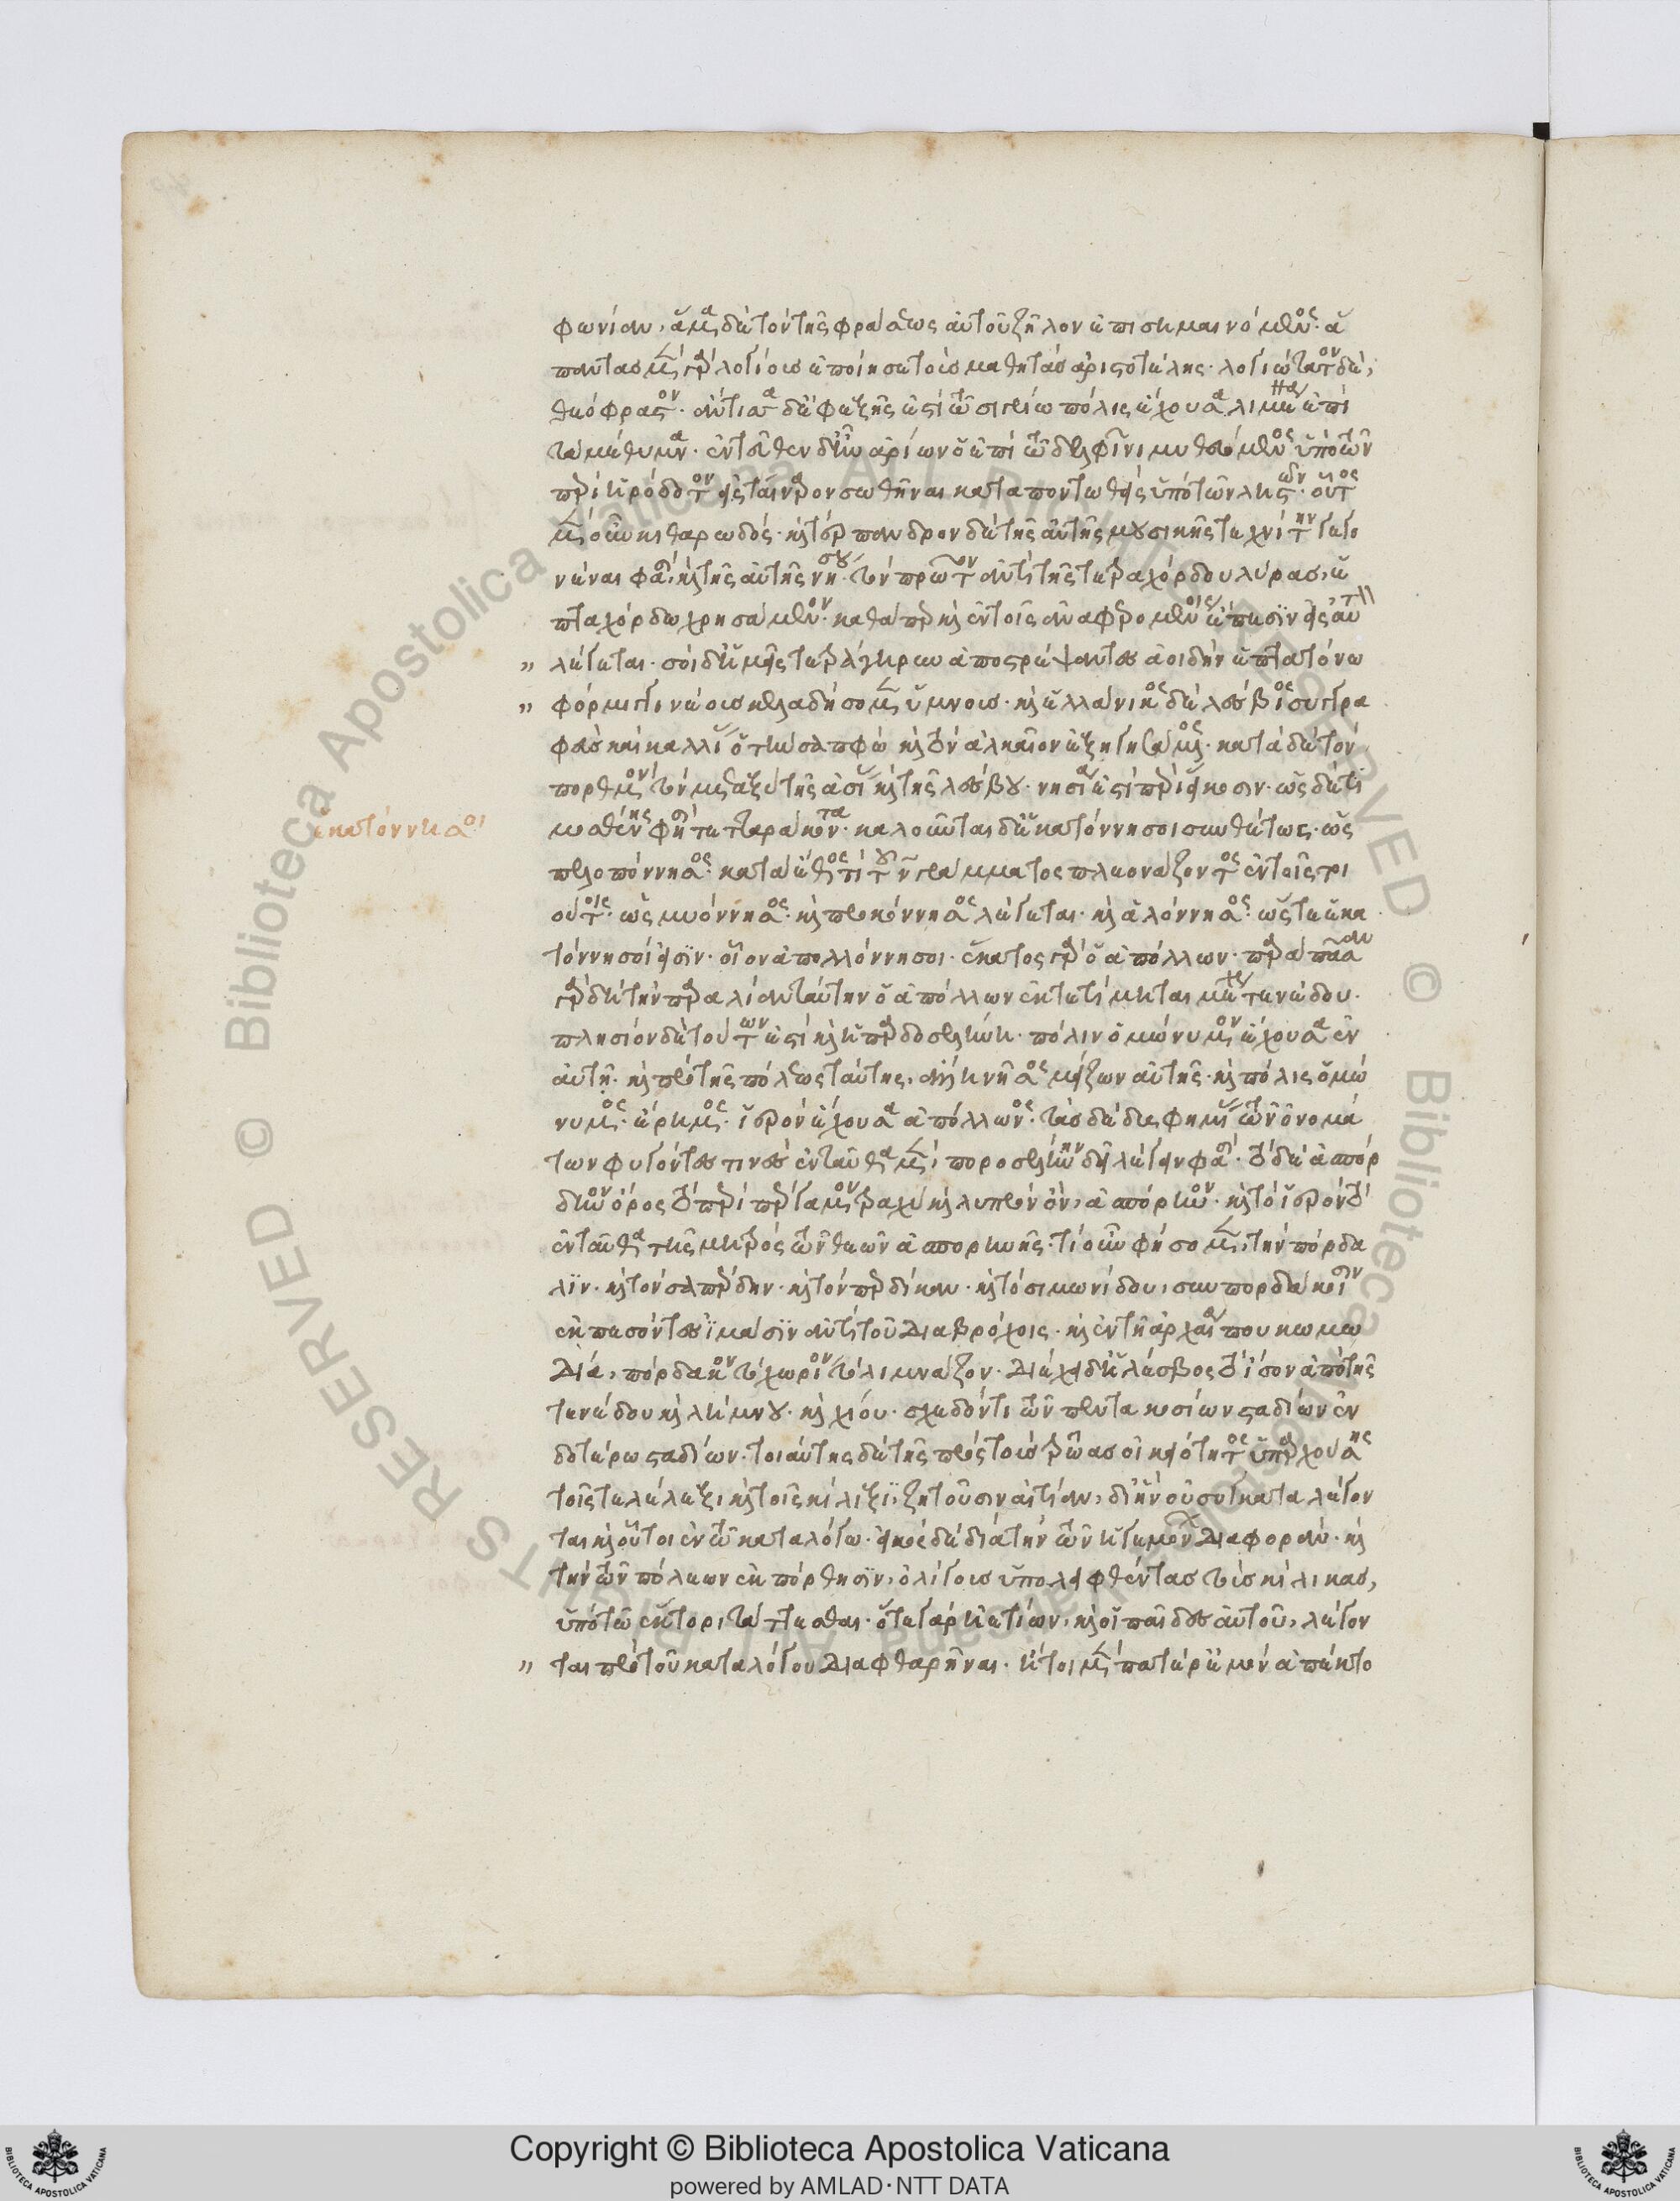 φωνίαν, ἅμα δὲ τὸν τῆς φράσεως αὐτοῦ ζῆλον ἐπισημαινόμενος· ἅ
παντας μὲν γὰρ λογίους ἐποίησε τοὺς μαθητὰς ἀριστοτέλης· λογιώτατον δὲ,
θεόφραστον· ἄντισσα δ' ἐφεξῆς ἐστὶ τῷ σιγρίῳ πόλις ἔχουσα λιμένα ἔπει
τα μήθυμνα· ἐντεῦθεν δ' ἦν ἀρίων ὁ ἐπὶ τῷ δελφῖνι μυθευόμενος ὑπὸ τῶν
περὶ ἡρόδοτον εἰς ταίναρον σωθῆναι καταποντωθεὶς ὑπὸ τῶν ληστῶν· οὗτος
μὲν οὖν κιθαρωδός· καὶ τέρπανδρον δὲ τῆς αὐτῆς μουσικῆς τεχνίτην γεγο
νέναι φασὶ, καὶ τῆς αὐτῆς νήσου· τὸν πρῶτον ἀντὶ τῆς τετραχόρδου λύρας, ἑ
πταχόρδω χρησάμενον· καθάπερ καὶ ἐν τοῖς ἀναφερομένοις ἔπεσιν εἰς αὐτὸν
" λέγεται· σοὶ δ' ἡμεῖς τετράγηρυν ἀποστρέψαντες ἀοιδὴν ἑπτατόνω
" φόρμιγγι νέους κελαδήσομεν ὕμνους· καὶ ἑλλάνικος δὲ λέσβιος συγγρα
φεὺς καὶ καλλίας ὁ τὴν σαπφὼ καὶ τὸν ἀλκαῖον ἐξηγησάμενος· κατὰ δὲ τὸν
πορθμὸν τὸν μεταξὺ τῆς ἀσίας καὶ τῆς λέσβου· νησία ἐστὶ περὶ εἴκοσιν· ὡς δὲ τι
μοσθένης φησὶ τετταράκοντα· καλοῦνται δ' ἑκατόννησοι συνθέτως· ὡς
πελοπόννησος· κατὰ ἔθος τι τοῦ ν γράμματος πλεονάζοντος ἐν τοῖς τοι
ούτοις· ὡς μυόννησος· καὶ προκόννησος λέγεται· καὶ ἁλόννησος· ὥστε ἑκα
τόννησοί εἰσιν· οἷον ἀπολλόννησοι· ἕκατος γὰρ ὁ ἀπόλλων· παρὰ πᾶσαν
γὰρ δὴ τὴν παραλίαν ταύτην ὁ ἀπόλλων ἐκτετίμηται μέχρι τενέδου·
πλησίον δὲ τούτων ἐστὶ καὶ ἡ πορδοσελήνη· πόλιν ὁμώνυμον ἔχουσα ἐν
αὐτῇ· καὶ πρὸ τῆς πόλεως ταύτης, ἄλλη νῆσος μείζων αὐτῆς· καὶ πόλις ὁμώ
νυμος· ἔρημος· ἱερὸν ἔχουσα ἀπόλλωνος· τὰς δὲ δυσφημίας τῶν ὀνομά
των φυγόντες τινὲς ἐνταῦθα μὲν, ποροσελήνην δεῖ λέγειν φασί· τὸ δὲ ἀσπόρ
δηνον ὄρος τὸ περὶ πέργαμον τραχὺ καὶ λυπρὸν ὂν, ἀσπόρηνον· καὶ τὸ ἱερὸν τὸ
ἐνταῦθα τῆς μητρὸς τῶν θεῶν ἀσπορηνῆς· τί οὖν φήσομεν, τὴν πόρδα
λιν· καὶ τὸν σαπέρδην· καὶ τὸν περδίκαν· καὶ τὸ σιμωνίδου, σὺν πορδακοῖσιν
ἐκπεσόντες εἵμασιν ἀντὶ τοῦ διαβρόχοις· καὶ ἐν τῇ ἀρχαίᾳ που κωμω
δία, πόρδακον τὸ χωρίον τὸ λιμνάζον· διέχει δ' ἡ λέσβος τὸ ἴσον ἀπὸ τῆς
τενέδου καὶ λήμνου· καὶ χίου· σχεδόν τι τῶν πεντακοσίων σταδίων ἐν
δοτέρω σταδίων· τοιαύτης δὲ τῆς πρὸς τοὺς τρῶας οἰκειότητος ὑπαρχούσης
τοῖς τε λέλεξι καὶ τοῖς κίλιξι, ζητοῦσιν αἰτίαν, δι' ἣν οὐ συγκαταλέγον
ται καὶ οὗτοι ἐν τῷ καταλόγω· εἰκὸς δὲ διὰ τὴν τῶν ἡγεμόνων διαφορὰν· καὶ
τὴν τῶν πόλεων ἐκπόρθησιν, ὀλίγους ὑπολειφθέντας τοὺς κίλικας,
ὑπὸ τῷ ἕκτορι τάττεσθαι· ὅ τε γὰρ ἠετίων, καὶ οἱ παῖδες αὐτοῦ, λέγον
" ται πρὸ τοῦ καταλόγου διαφθαρῆναι· ἤτοι μὲν πατέρ' ἁμὸν ἀπέκτα
ἑκατόννησοι